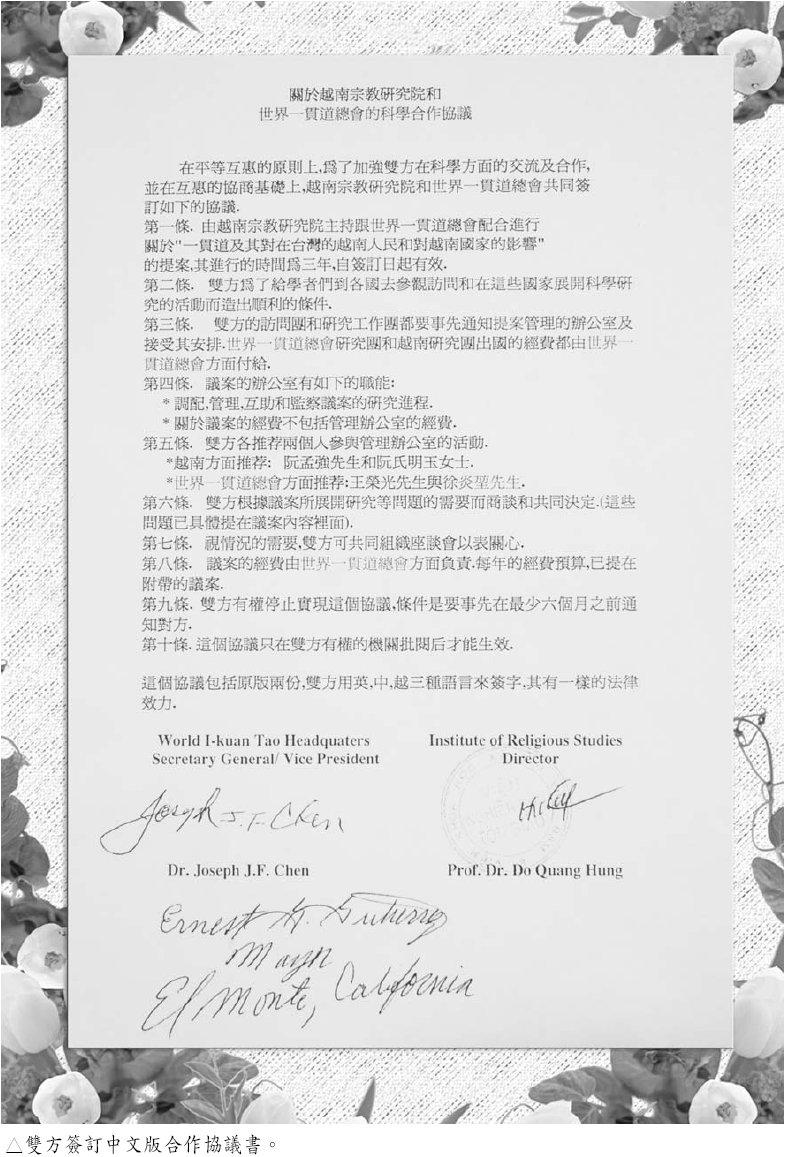 關於越南宗教研究院和
世界一貫道總會的科學合作協議
在平等互惠的原則上,爲了加強雙方在科學方面的交流及合作,
並在互惠的協商基礎上,越南宗教研究院和世界一貫道總會共同簽
訂如下的協議.
第一條. 由越南宗教研究院主持跟世界一貫道總會配合進行
關於"一貫道及其對在台灣的越南人民和對越南國家的影響"
的提案,其進行的時間爲三年,自簽訂日起有效.
第二條. 雙方爲了給學者們到各國去參觀訪問和在這些國家展開科學研
究的活動而造出順利的條件.
第三條. 雙方的訪問團和研究工作團都要事先通知提案管理的辦公室及
接受其安排.世界一貫道總會研究團和越南研究團出國的經費都由世界一
貫道總會方面付給.
第四條. 議案的辦公室有如下的職能:
* 調配,管理,互助和監察議案的研究進程.
* 關於議案的經費不包括管理辦公室的經費.
第五條. 雙方各推荐兩個人參與管理辦公室的活動.
*越南方面推荐: 阮孟強先生和阮氏明玉女士.
*世界一貫道總會方面推荐:王榮光先生與徐炎堃先生.
第六條. 雙方根據議案所展開研究等問題的需要而商談和共同決定.(這些
問題已具體提在議案內容裡面).
第七條. 視情況的需要,雙方可共同組織座談會以表關心.
第八條. 議案的經費由世界一貫道總會方面負責.每年的經費預算,已提在
附帶的議案.
第九條. 雙方有權停止實現這個協議,條件是要事先在最少六個月之前通
知對方.
第十條. 這個協議只在雙方有權的機關批閱后才能生效.
這個協議包括原版兩份,雙方用英,中,越三種語言來簽字,其有一樣的法律
效力.
World I-kuan Tao Headquaters
Secretary General/ Vice President
Institute of Religious Studies
Director
Joseph J.F. Chen
Dr. Joseph J.F. Chen
Prof. Dr. Do Quang Hung
Ernest G. Gutierrez
Mayor
El Monte, California
△雙方簽訂中文版合作協議書。